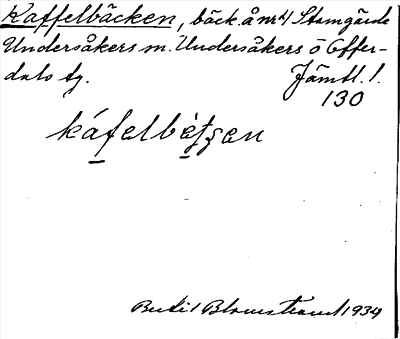 Kaffelbäcken, bäck å nr 4 Stamgärde
Undersåkers sn. Undersåkers o Offer-
dals tg. Jämtl. l.
130
káfelbètsen
Bertil Blomstrand 1934